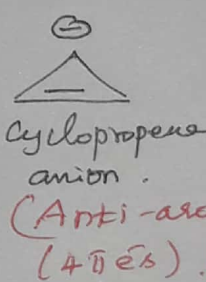 ⊖
Cyclopropene
anion.
(Anti-aro
(4πēs).